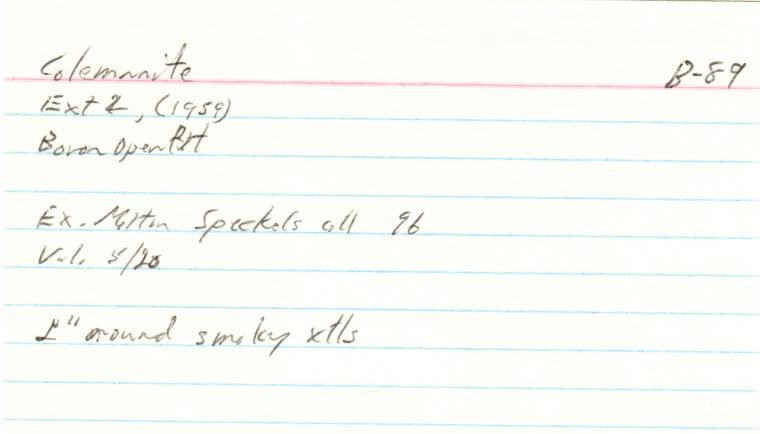 Colemanite B-89
Ext 2, (1959)
Boron Open Pit
Ex. Milton Speckels coll 96
Val. 5/20
1" around smoky xtls